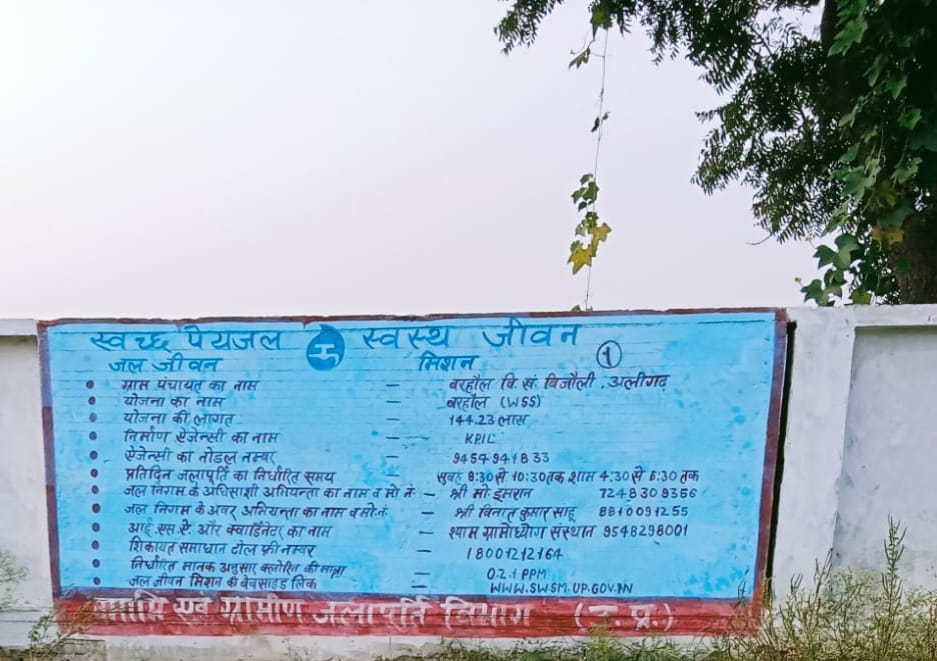 स्वच्छ पेयजल स्वस्थ जीवन
जल जीवन मिशन ①
• ग्राम पंचायत का नाम – बरहौल वि. खं. बिजौली, अलीगढ़
• योजना का नाम – बरहौल (WSS)
• योजना की लागत – 144.23 लाख
• निर्माण ऐजेन्सी का नाम – KPIL
• ऐजेन्सी का नोडल नम्बर – 9454941833
• प्रतिदिन जलापूर्ति का निर्धारित समय सुबह 8:30 से 10:30 तक शाम 4:30 से 6:30 तक
• जल निगम के अधिशासी अभियन्ता का नाम व मो. नं. – श्री मो. इमरान 7248309356
• जल निगम के अवर अभियन्ता का नाम व मो. नं. – श्री विनीत कुमार साहू 8810091255
• आई. एस. ऐ. और क्वार्डिनेटर का नाम – श्याम ग्रामोध्योग संस्थान 9548298001
• शिकायत समाधान टोल फ्री नम्बर – 18001212164
• निर्धारित मानक अनुसार क्लोरिन की मात्रा – 0.2.1 PPM
• जल जीवन मिशन की वेबसाइड लिंक – WWW.SWSM.UP.GOV.IN
नमामि एवं ग्रामीण जलापूर्ति विभाग (उ. प्र.)